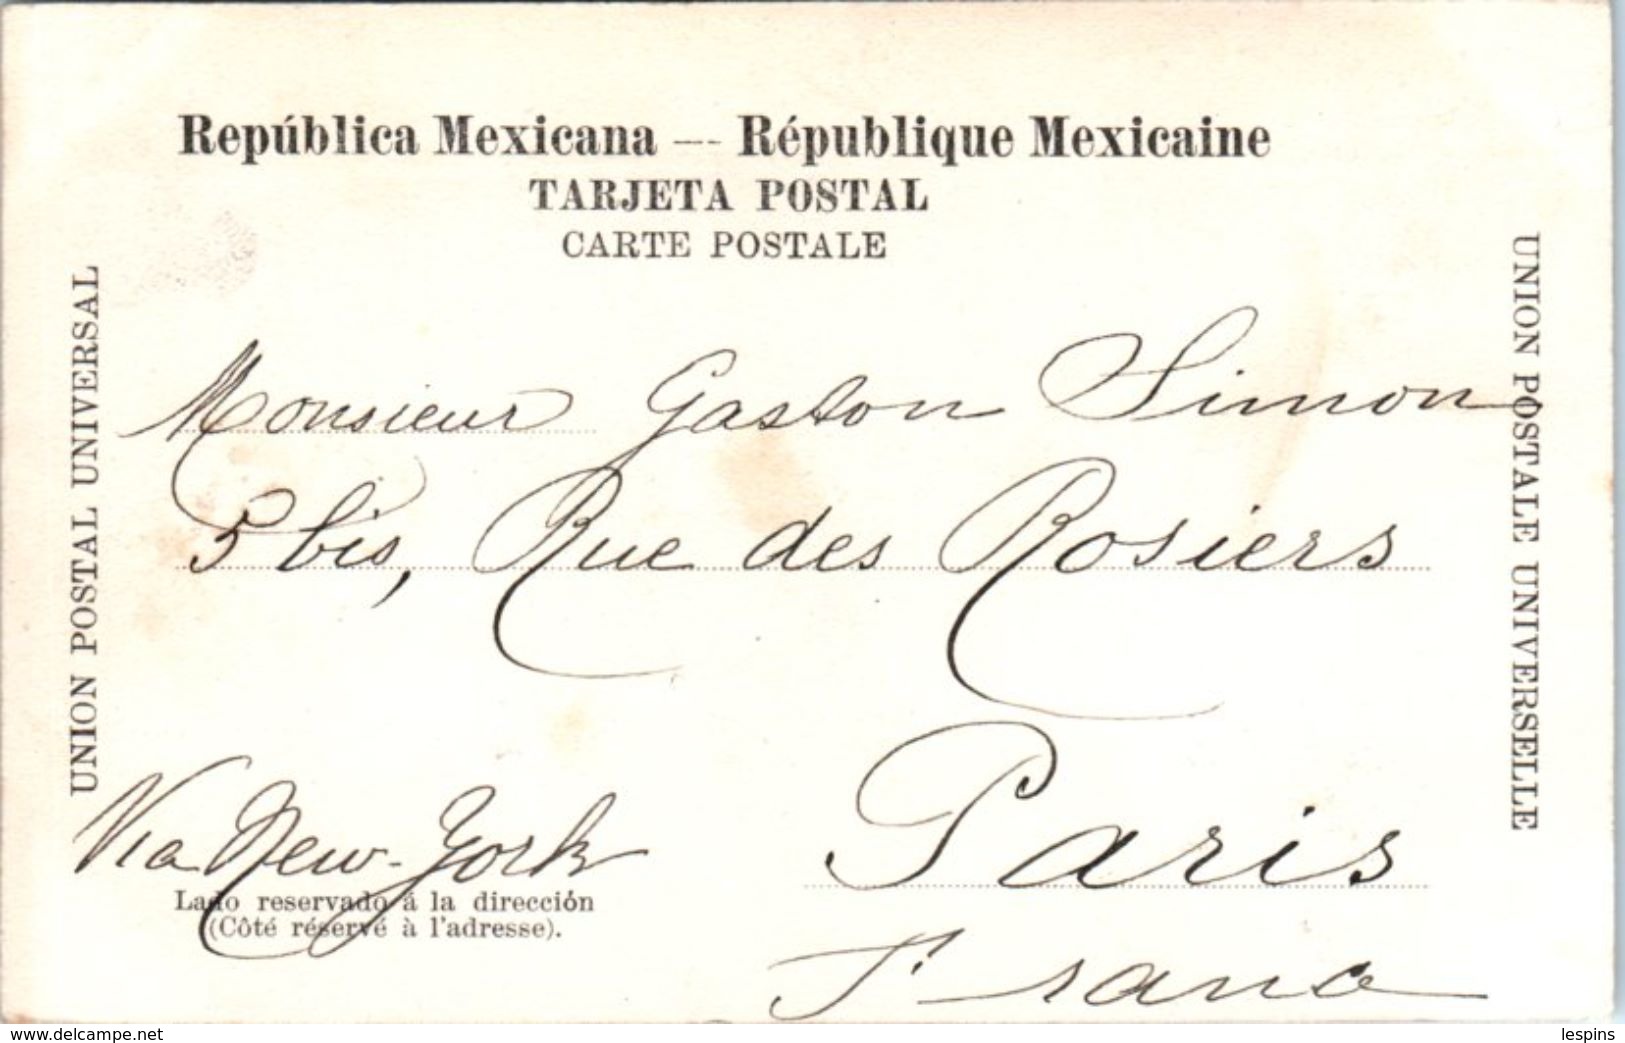 República Mexicana — République Mexicaine
TARJETA POSTAL
CARTE POSTALE
UNION POSTAL UNIVERSAL
UNION POSTALE UNIVERSELLE
Monsieur Gaston Simon
5 bis, Rue des Rosiers
Paris
France
Via New-York
Lado reservado á la dirección
(Côté réservé à l'adresse).
www.delcampe.net
lespins